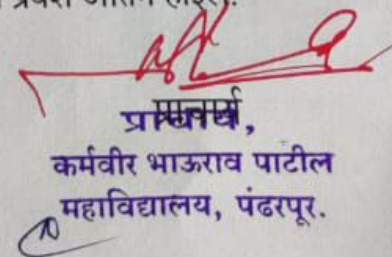 प्राचार्य
प्राचार्य,
कर्मवीर भाऊराव पाटील
महाविद्यालय, पंढरपूर.